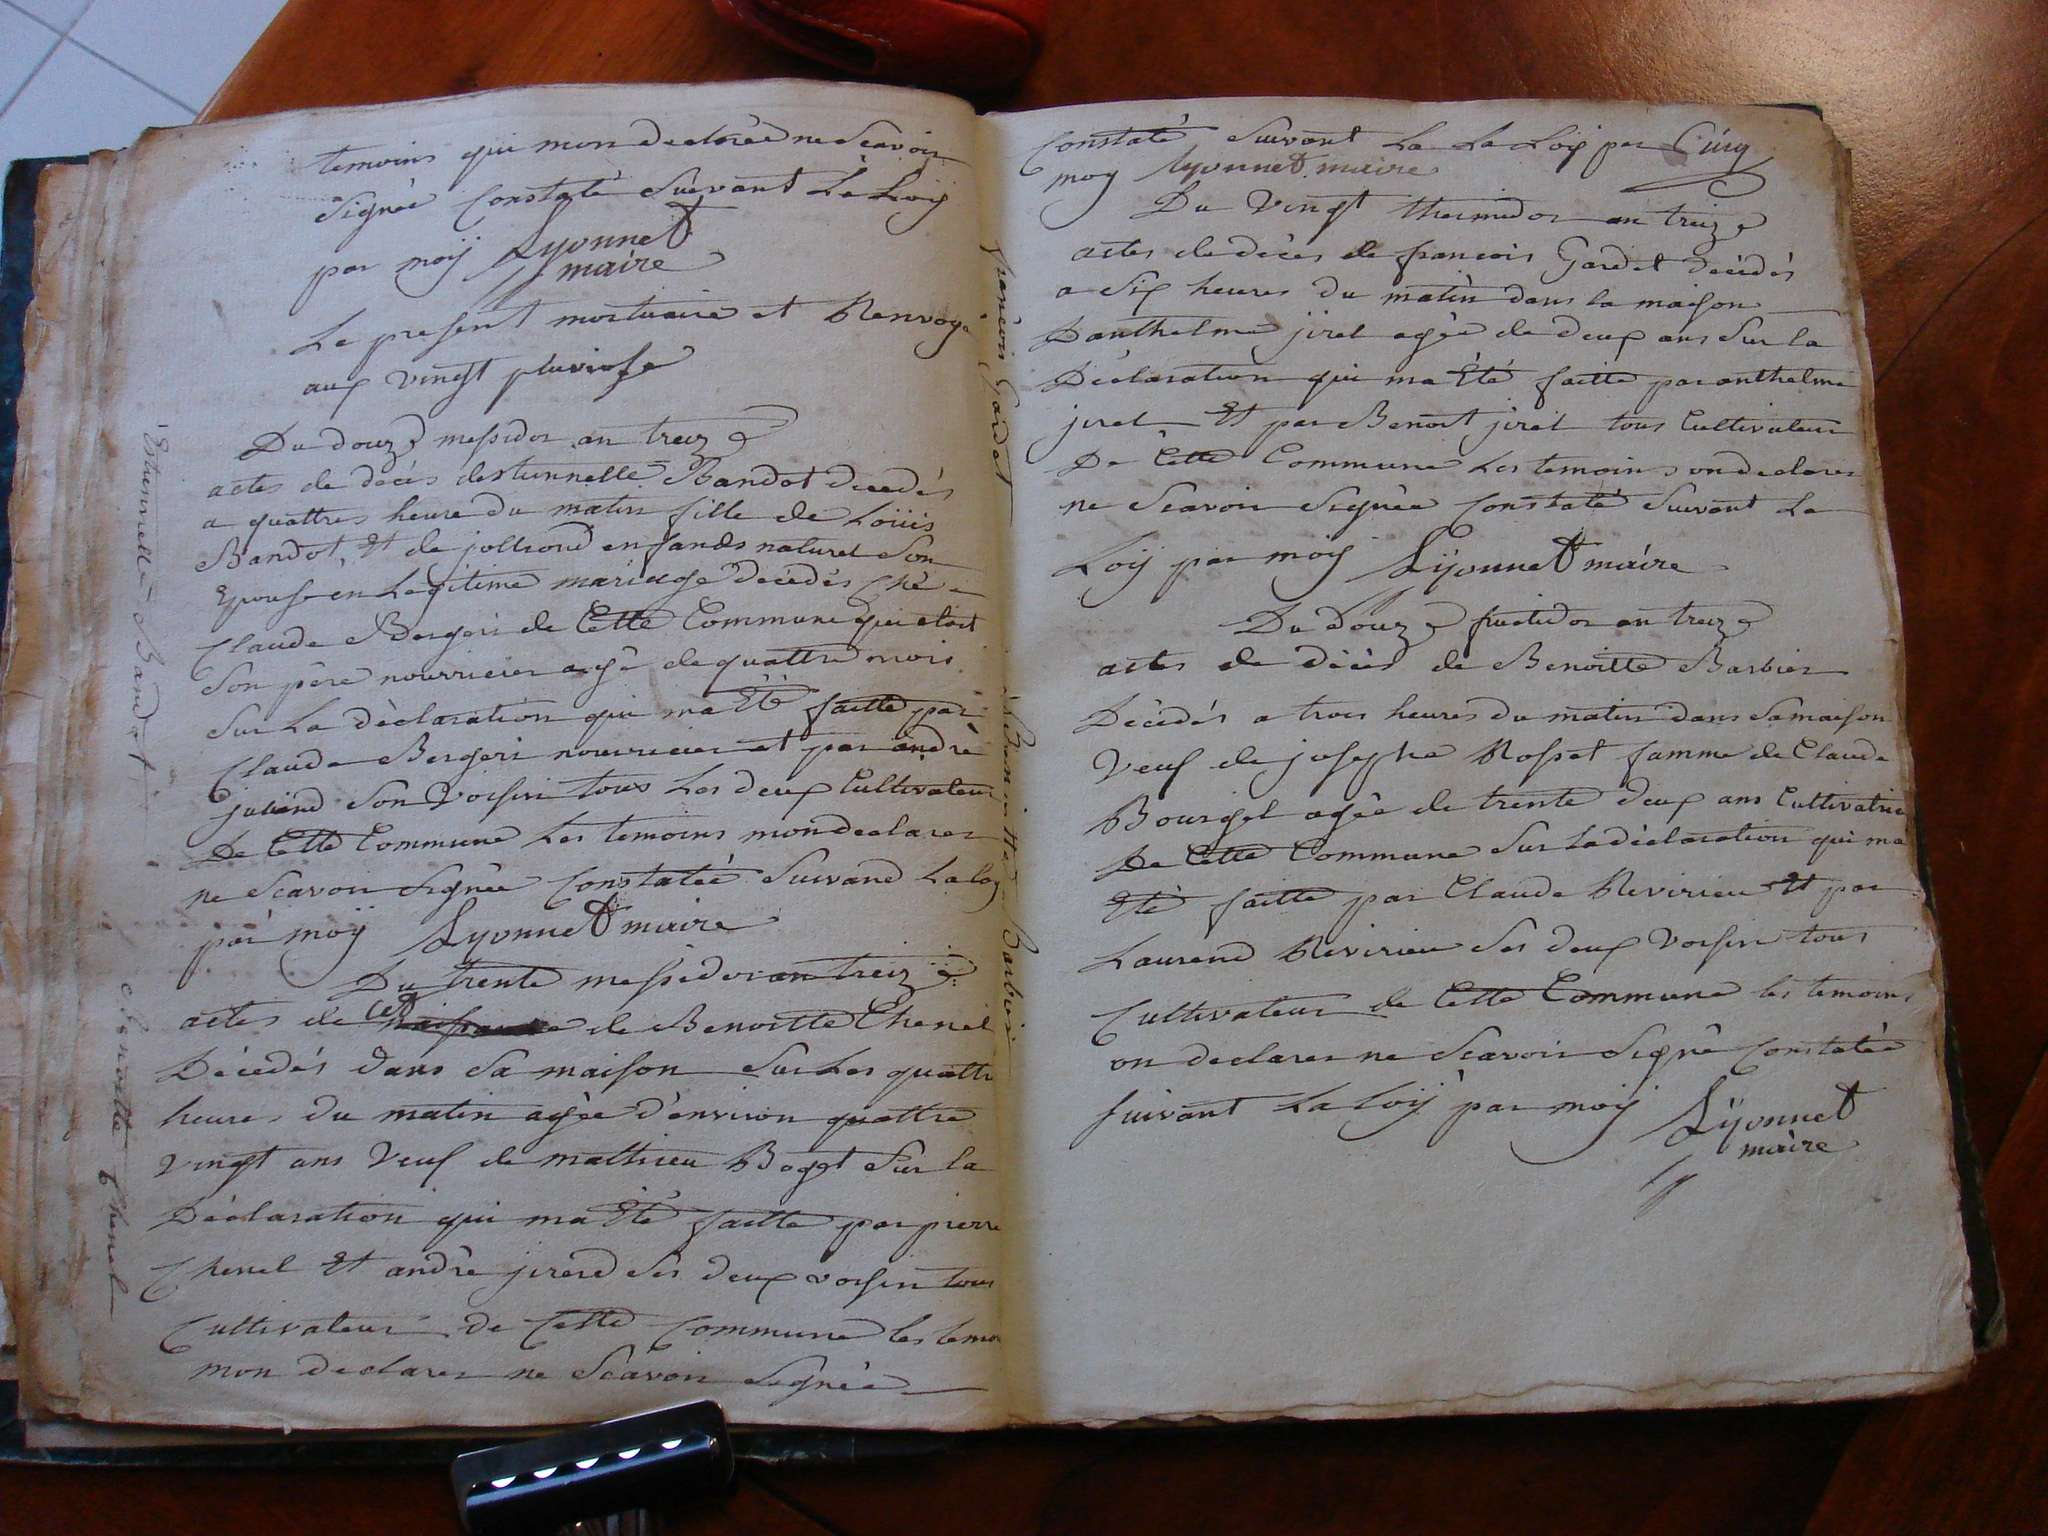 temoins qui mon declarée ne Scavoir
Signée Constaté Suivant La Loij
par moij Lyonnet
maire
Le present mortuaire et Renvoyé
aux vingt pluviose
Du douze messidor an treize
actes de décés destunnelle Bandot decedés
a quattres heure du matin fille de Loüis
Bandot, Et de jolliond enfands naturel Son
Epouse en Legitime mariage décédés Ché
Claude Bergeri de Cette Commune qui etoit
Son père nourricier agé de quattre mois
Sur La dèclaration qui ma Eté faitte par
Claude Bergeri nourricier et par andrè
juliend Son Voisin tous Les deux Cultivateur
De Cette Commune Les temoins mon declarer
ne Scavoir Signée Constatée Suivand La loy
par moij Lyonnet maire
Du trente messidor an treize
actes de de Benoitte Chenel
Décédés dans Sa maison Sur Les quattre
heures du matin agée d'environ quattre
Vingt ans Veuf de matthieu Boget Sur la
Déclaration qui ma Eté faitte par pierre
Chenel Et andrè jirerd Ses deux voisin tous
Cultivateur de Cette Commune les temoi
mon declarer ne Scavoir Signée
Estunnelle Bandot
Benoitte Chenel
Constaté Suivant La La Loij par
moy Lyonnet maire
Du Vingt thermidor an treize
actes de décés de francois Gardet décédés
a Six heures du matin dans la maison
Danthelme jiret agée de deux ans Sur la
Déclaration qui ma Eté faitte par anthelme
jiret Et par Benoit jiret tous Cultivateur
De Cette Commune Les temoins on declarer
ne Scavoir Signée Constaté Suivant La
Loij par moij Lyonnet maire
Du douze fructidor an treize
actes de décés de Benoitte Barbier
Décédés a trois heures du matin dans Sa maison
Veuf de josephe Rosset famme de Claude
Bourget agée de trente deux ans Cultivatrice
De Cette Commune Sur La déclaration qui ma
Eté faitte par Claude Revirieu Et par
Laurend Revirieu Ses deux Voisin tous
Cultivateur de Cette Commune les temoins
on declarer ne Scavoir Signé Constatée
Suivant La Loij par moij Lyonnet
maire
francois Gardet
Benoitte Barbier